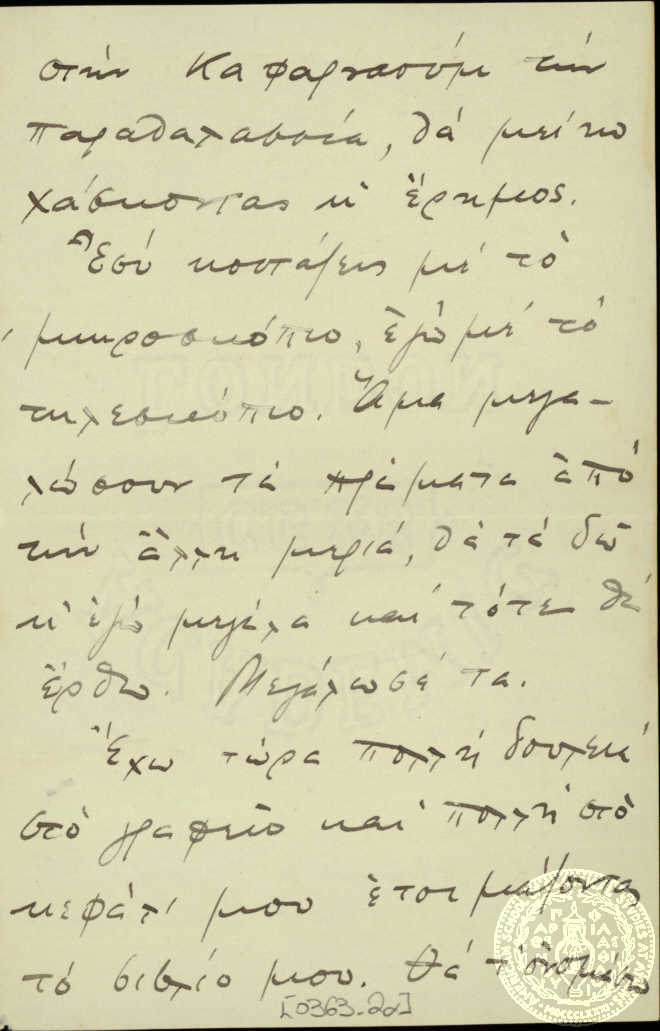 στὴν Καφαρναούμ τὴν
παραθαλασσία, θὰ μείνω
χάσκοντας κι ἔρημος.
Ἐσὺ κοιτάζεις μὲ τὸ
μικροσκόπιο, ἐγὼ μὲ τὸ
τηλεσκόπιο. Ἅμα μεγα-
λώσουν τὰ πράματα ἀπὸ
τὴν ἄλλη μεριά, θὰ τὰ δῶ
κι ἐγὼ μεγάλα καὶ τότε θὰ
ἔρθω. Μεγάλωσέ τα.
Ἔχω τώρα πολλὴ δουλειὰ
στὸ γραφεῖο καὶ πολλὴ στὸ
κεφάλι μου ἑτοιμάζοντας
τὸ βιβλίο μου. Θὰ τ' ὀνομάσω
[0363-2α]